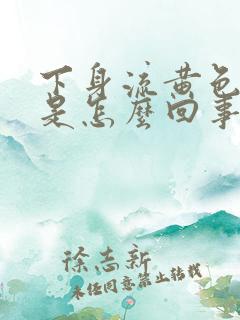 下身流黄色
是怎麽回事
徐志新
未经同意禁止转载